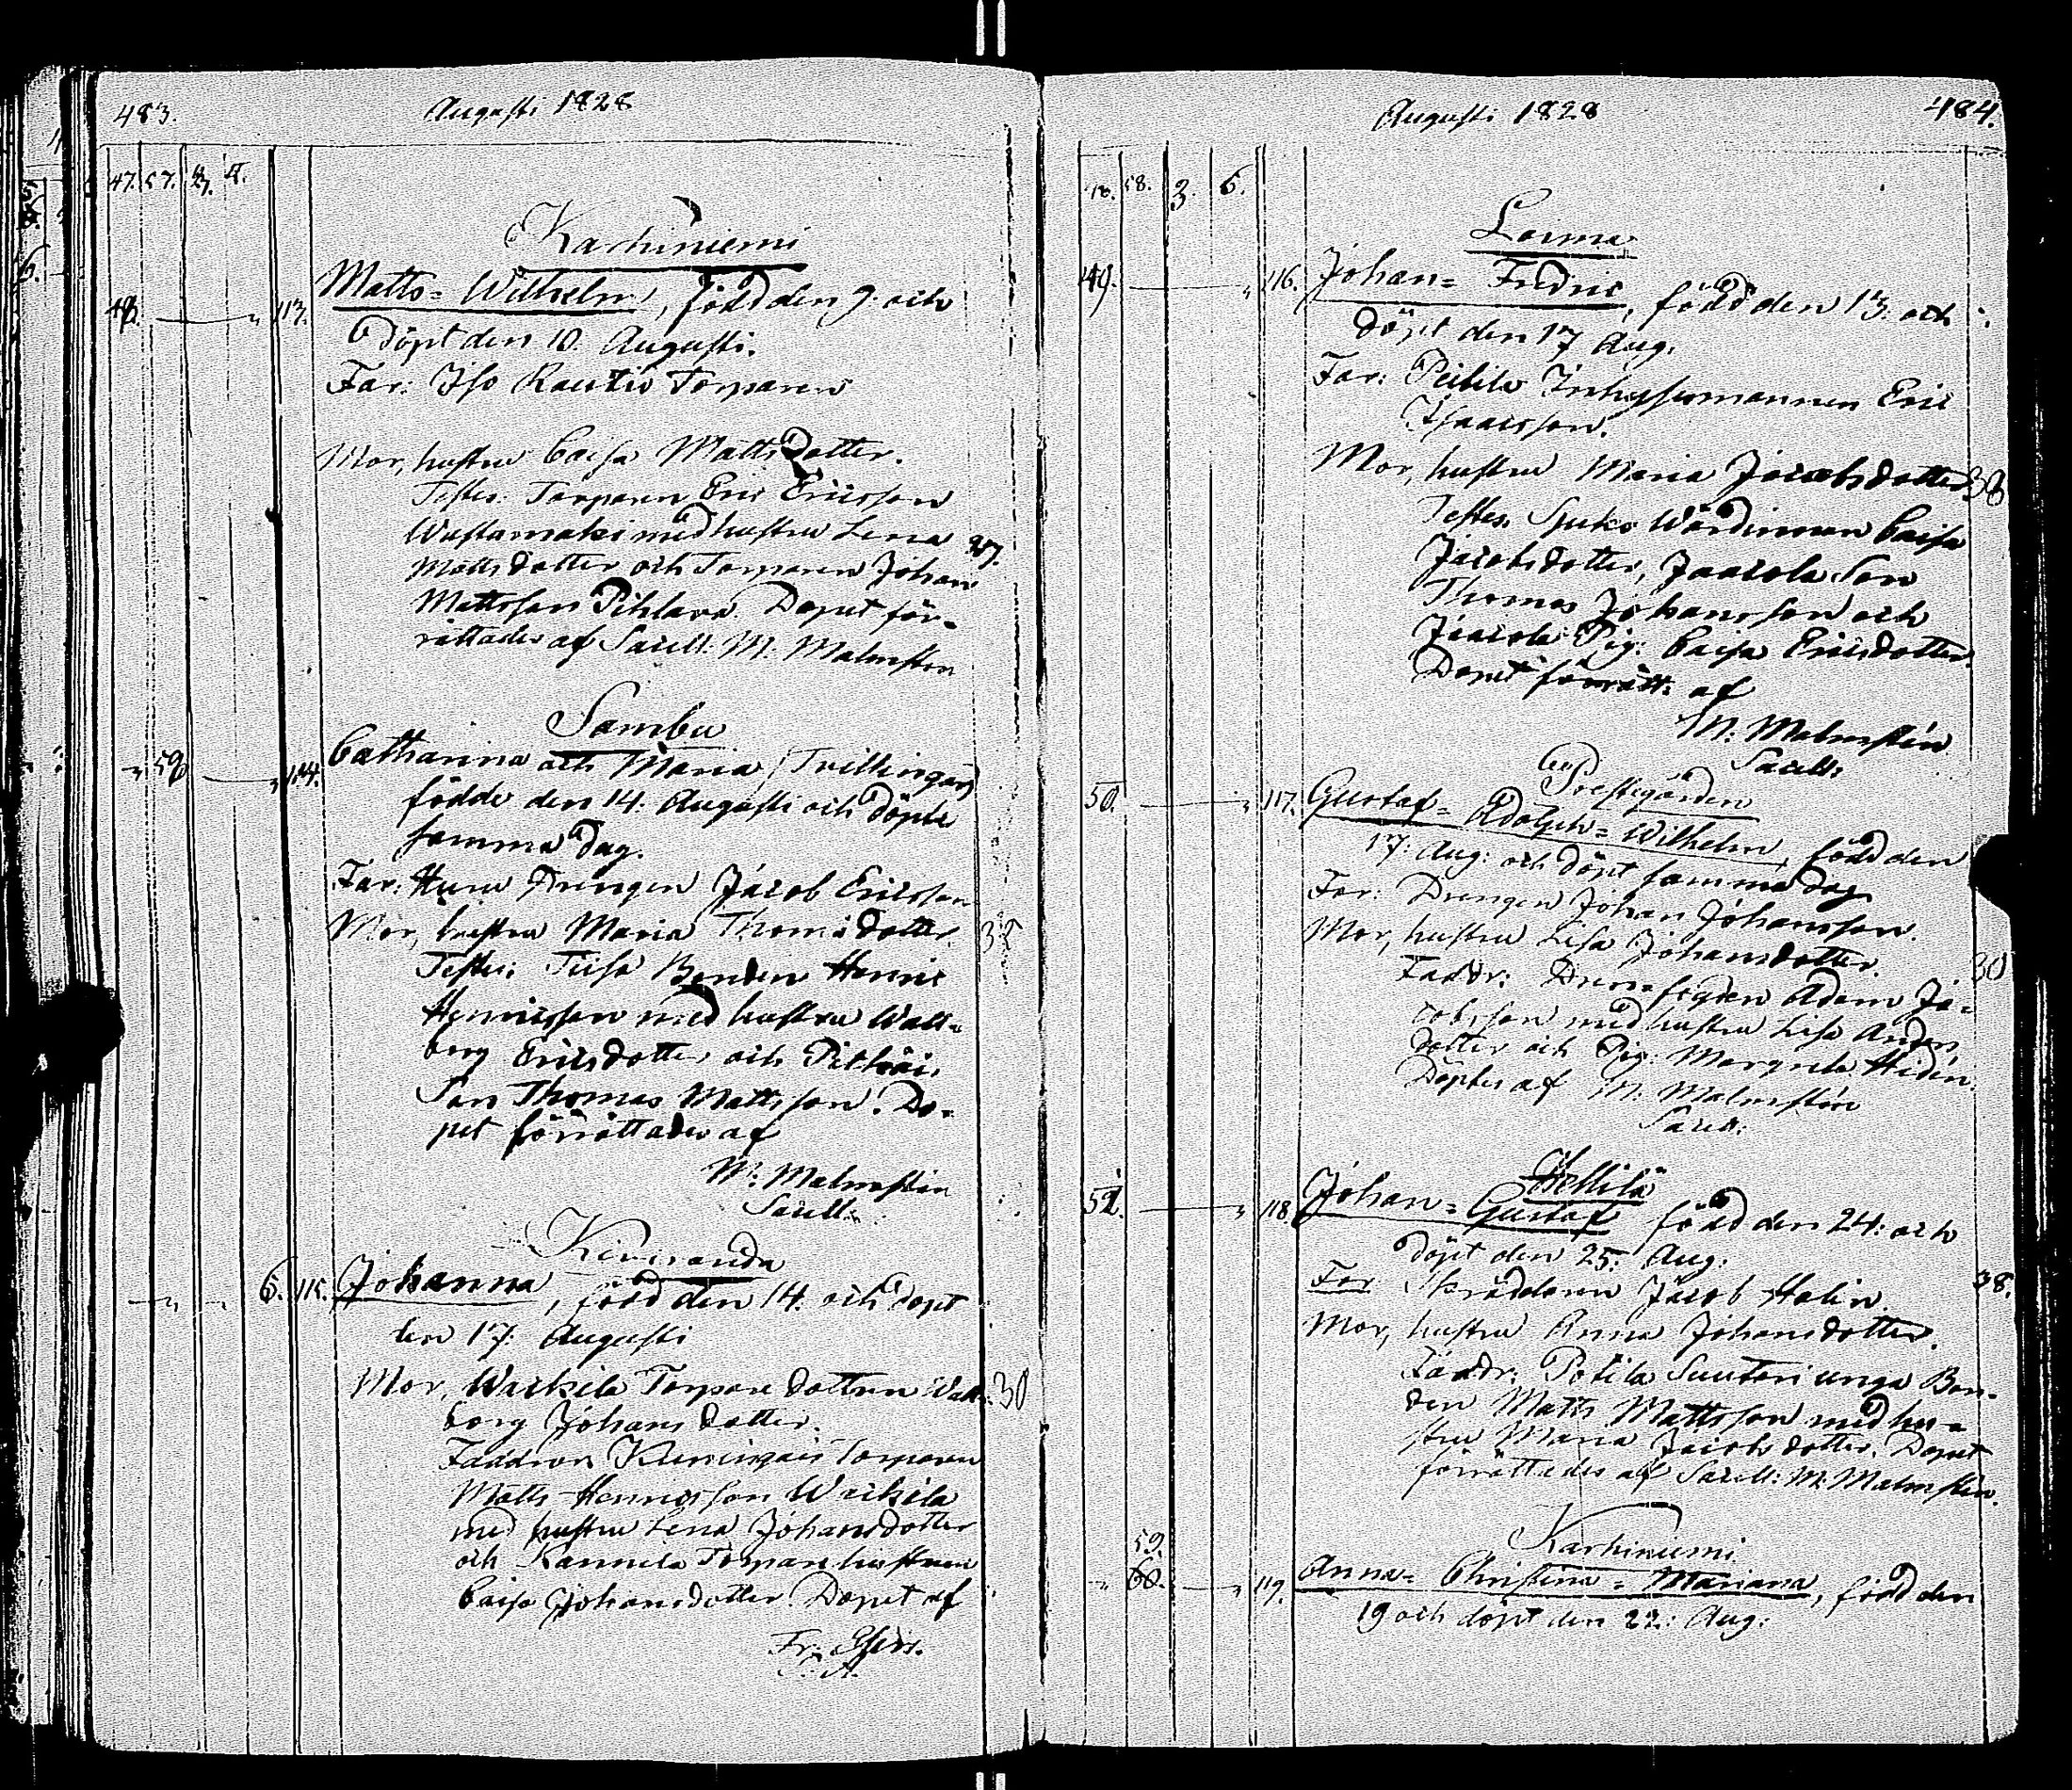 483.
Augusti 1828
47. 57. 2. 4.
Karhiniemi
48. 113. Matts = Wilhelm, född den 9. och
döpt den 10. Augusti.
Far: Iso Rautio Torparen
Mor, hustru Caisa Mattsdotter.
Testes: Torparen Eric Ericsson
Wustamäki med hustru Lena 37.
Mattsdotter och Torparen Johan
Mattsson Pihlava. Doput för-
rättades af Sacell: M: Malmsten
Sambu
59 114. Catharina och Maria (Tvillingar)
födde den 14. Augusti och döpte
samma dag.
Far: Drengen Jacob Ericsson
Mor, hustru Maria Thomasdotter. 35
Testes: Bonden Henric
Henricsson med hustru Wall-
borg Ericsdotter och
Son Thomas Mattsson. Do-
put förrättades af
M: Malmsten
Sacell:
5. 115. Johanna, född den 14. och döpt
den 17. Augusti
Mor, Torpare dottren Wall- 30
borg Johansdotter.
Faddrar Torparen
Matts Henricsson
med hustru Lena Johansdotter
och Torpare hustrun
Caisa Johansdotter. Doput af
484.
Augusti 1828
48. 58. 3. 5.
Loima
49. 116. Johan = Fredric, född den 13. och
döpt den 17 Aug.
Far: Inhysesmannen Eric
Isaacsson.
Mor, hustru Maria Jacobsdotter 38
Testes. Wärdinnan Caisa
Jacobsdotter, Son
Thomas Johansson och
Pig: Caisa Ericsdotter.
Doput förrätt: af
M: Malmstén
Sacell:
Prestegården
50. 117. Gustaf = Adolph = Wilhelm, född den
17. Aug: och döpt samma dag
Far: Drengen Johan Johansson.
Mor, hustru Lisa Johansdotter. 30
Faddr: Adam Ja-
cobsson med hustru Lisa Anders
dotter och Pig: Margreta Hedén.
Döptes af M: Malmstén
Sacell:
118. Johan = Gustaf född den 24. och
döpt den 25. Aug:
Far Skräddaren Jacob Holin. 38.
Mor, hustru Anna Johansdotter.
Faddr: Potila Suutari unga Bon-
den Matts Mattsson med hu-
stru Maria Jacobsdotter. Doput
förrättades af Sacell: M: Malmstén.
Karhiniemi
59.
60. 119. Anna = Christina = Mariana, född den
19 och döpt den 22: Aug: